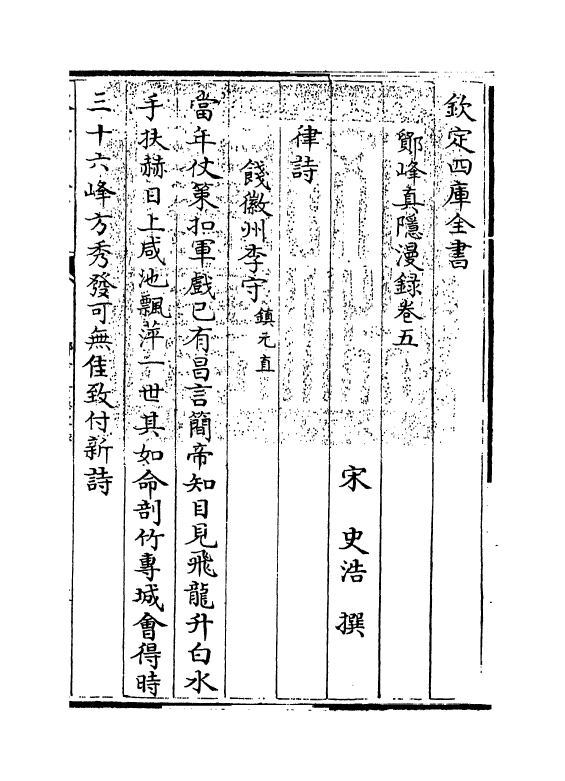 欽定四庫全書
鄮峰真隱漫録卷五
宋　史浩　撰
律詩
餞徽州李守鎮元直
當年仗策扣軍戲已有昌言簡帝知目見飛龍升白水
手扶赫日上咸池飄萍一世其如命剖竹專城會得時
三十六峰方秀發可無佳致付新詩